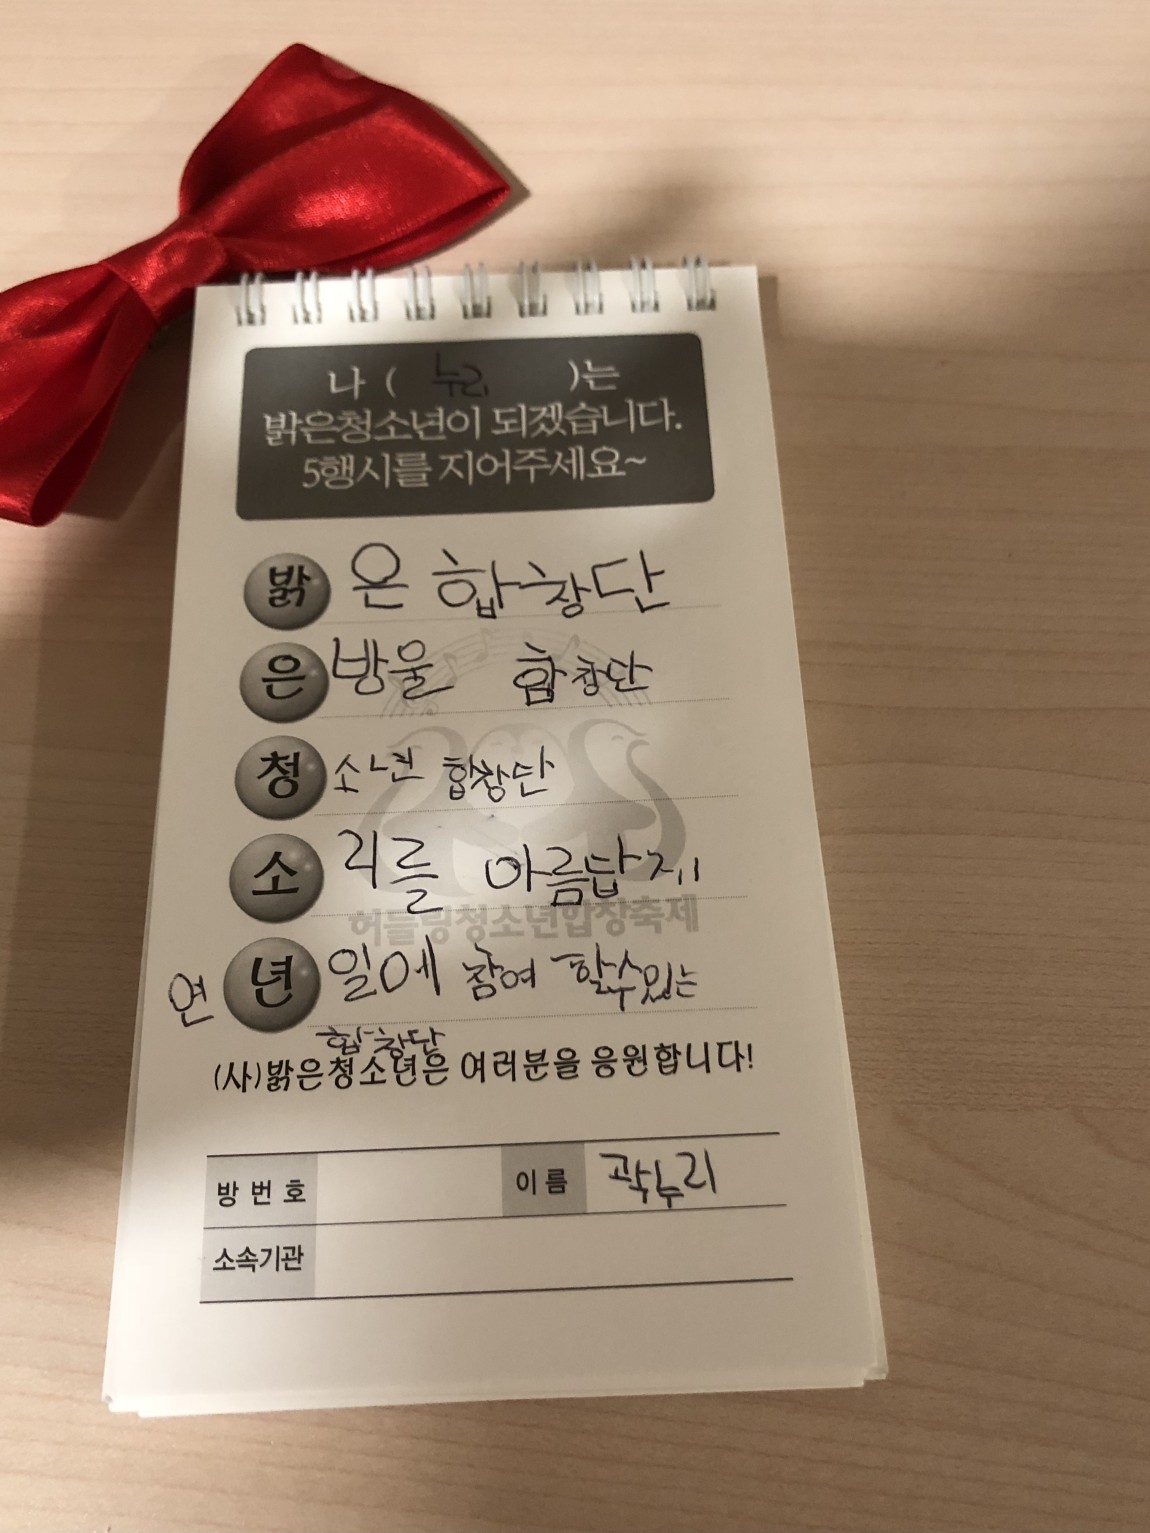 나 ( 누리 )는
밝은청소년이 되겠습니다.
5행시를 지어주세요~
밝 은 합창단
은 방울 합창단
청 소년 합창단
소 리를 아름답게
허들링청소년합창축제
연 년 일에 참여 할수있는
합창단
(사)밝은청소년은 여러분을 응원합니다!
방 번 호 이 름 곽누리
소속기관